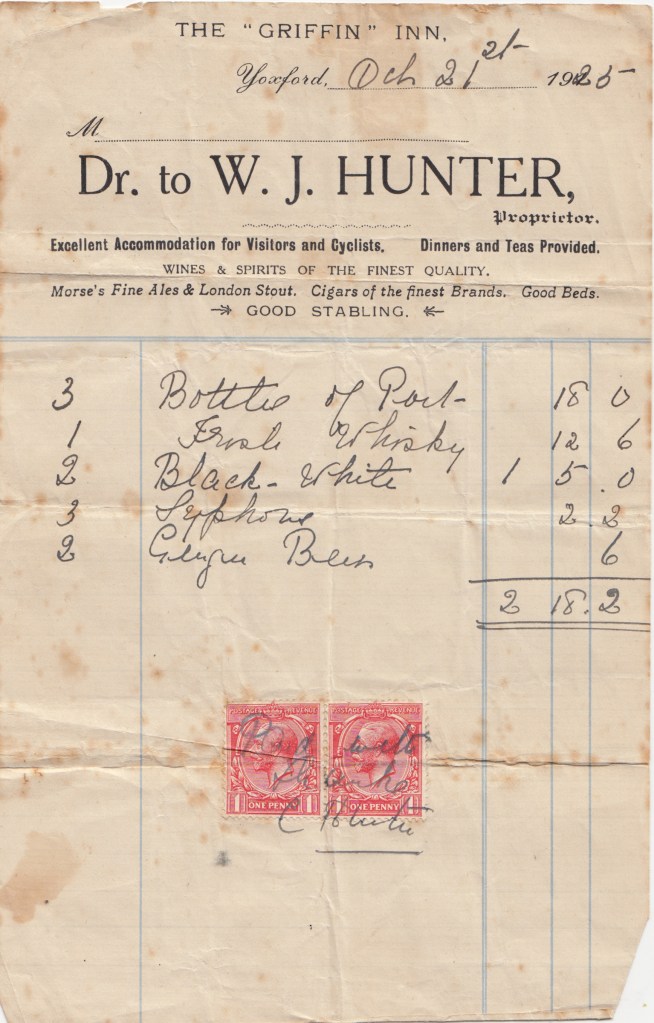 THE "GRIFFIN" INN,
Yoxford, Oct 21st 1925
M
Dr. to W. J. HUNTER,
Proprietor.
Excellent Accommodation for Visitors and Cyclists. Dinners and Teas Provided.
WINES & SPIRITS OF THE FINEST QUALITY.
Morse's Fine Ales & London Stout. Cigars of the finest Brands. Good Beds.
GOOD STABLING.
3 Bottles of Port 18 0
1 Irish Whisky 12 6
2 Black - White 1 5.0
3 Syphons 2.2
2 Ginger Beers 6
2 18.2
POSTAGE REVENUE POSTAGE REVENUE
Paid with
thanks
1 ONE PENNY 1 1 ONE PENNY 1
Hunter